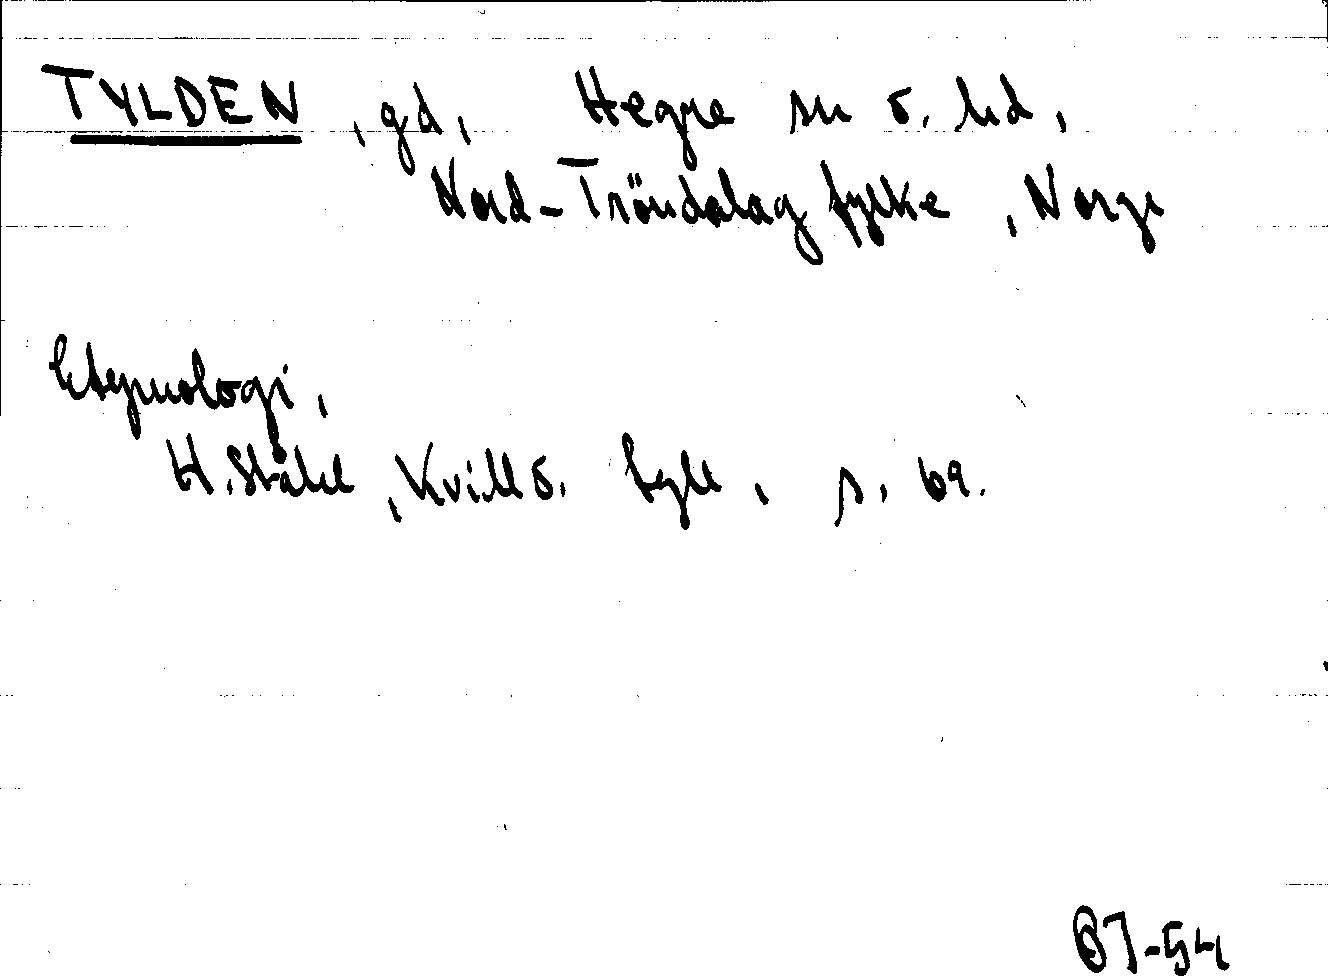 TYLDEN, gd, Hegre sn o. hd,
Nord-Tröndalag fylke, Norge
Etymologi,
H. Ståhl, Kvill o. tyll, s. 69.
BJ-54